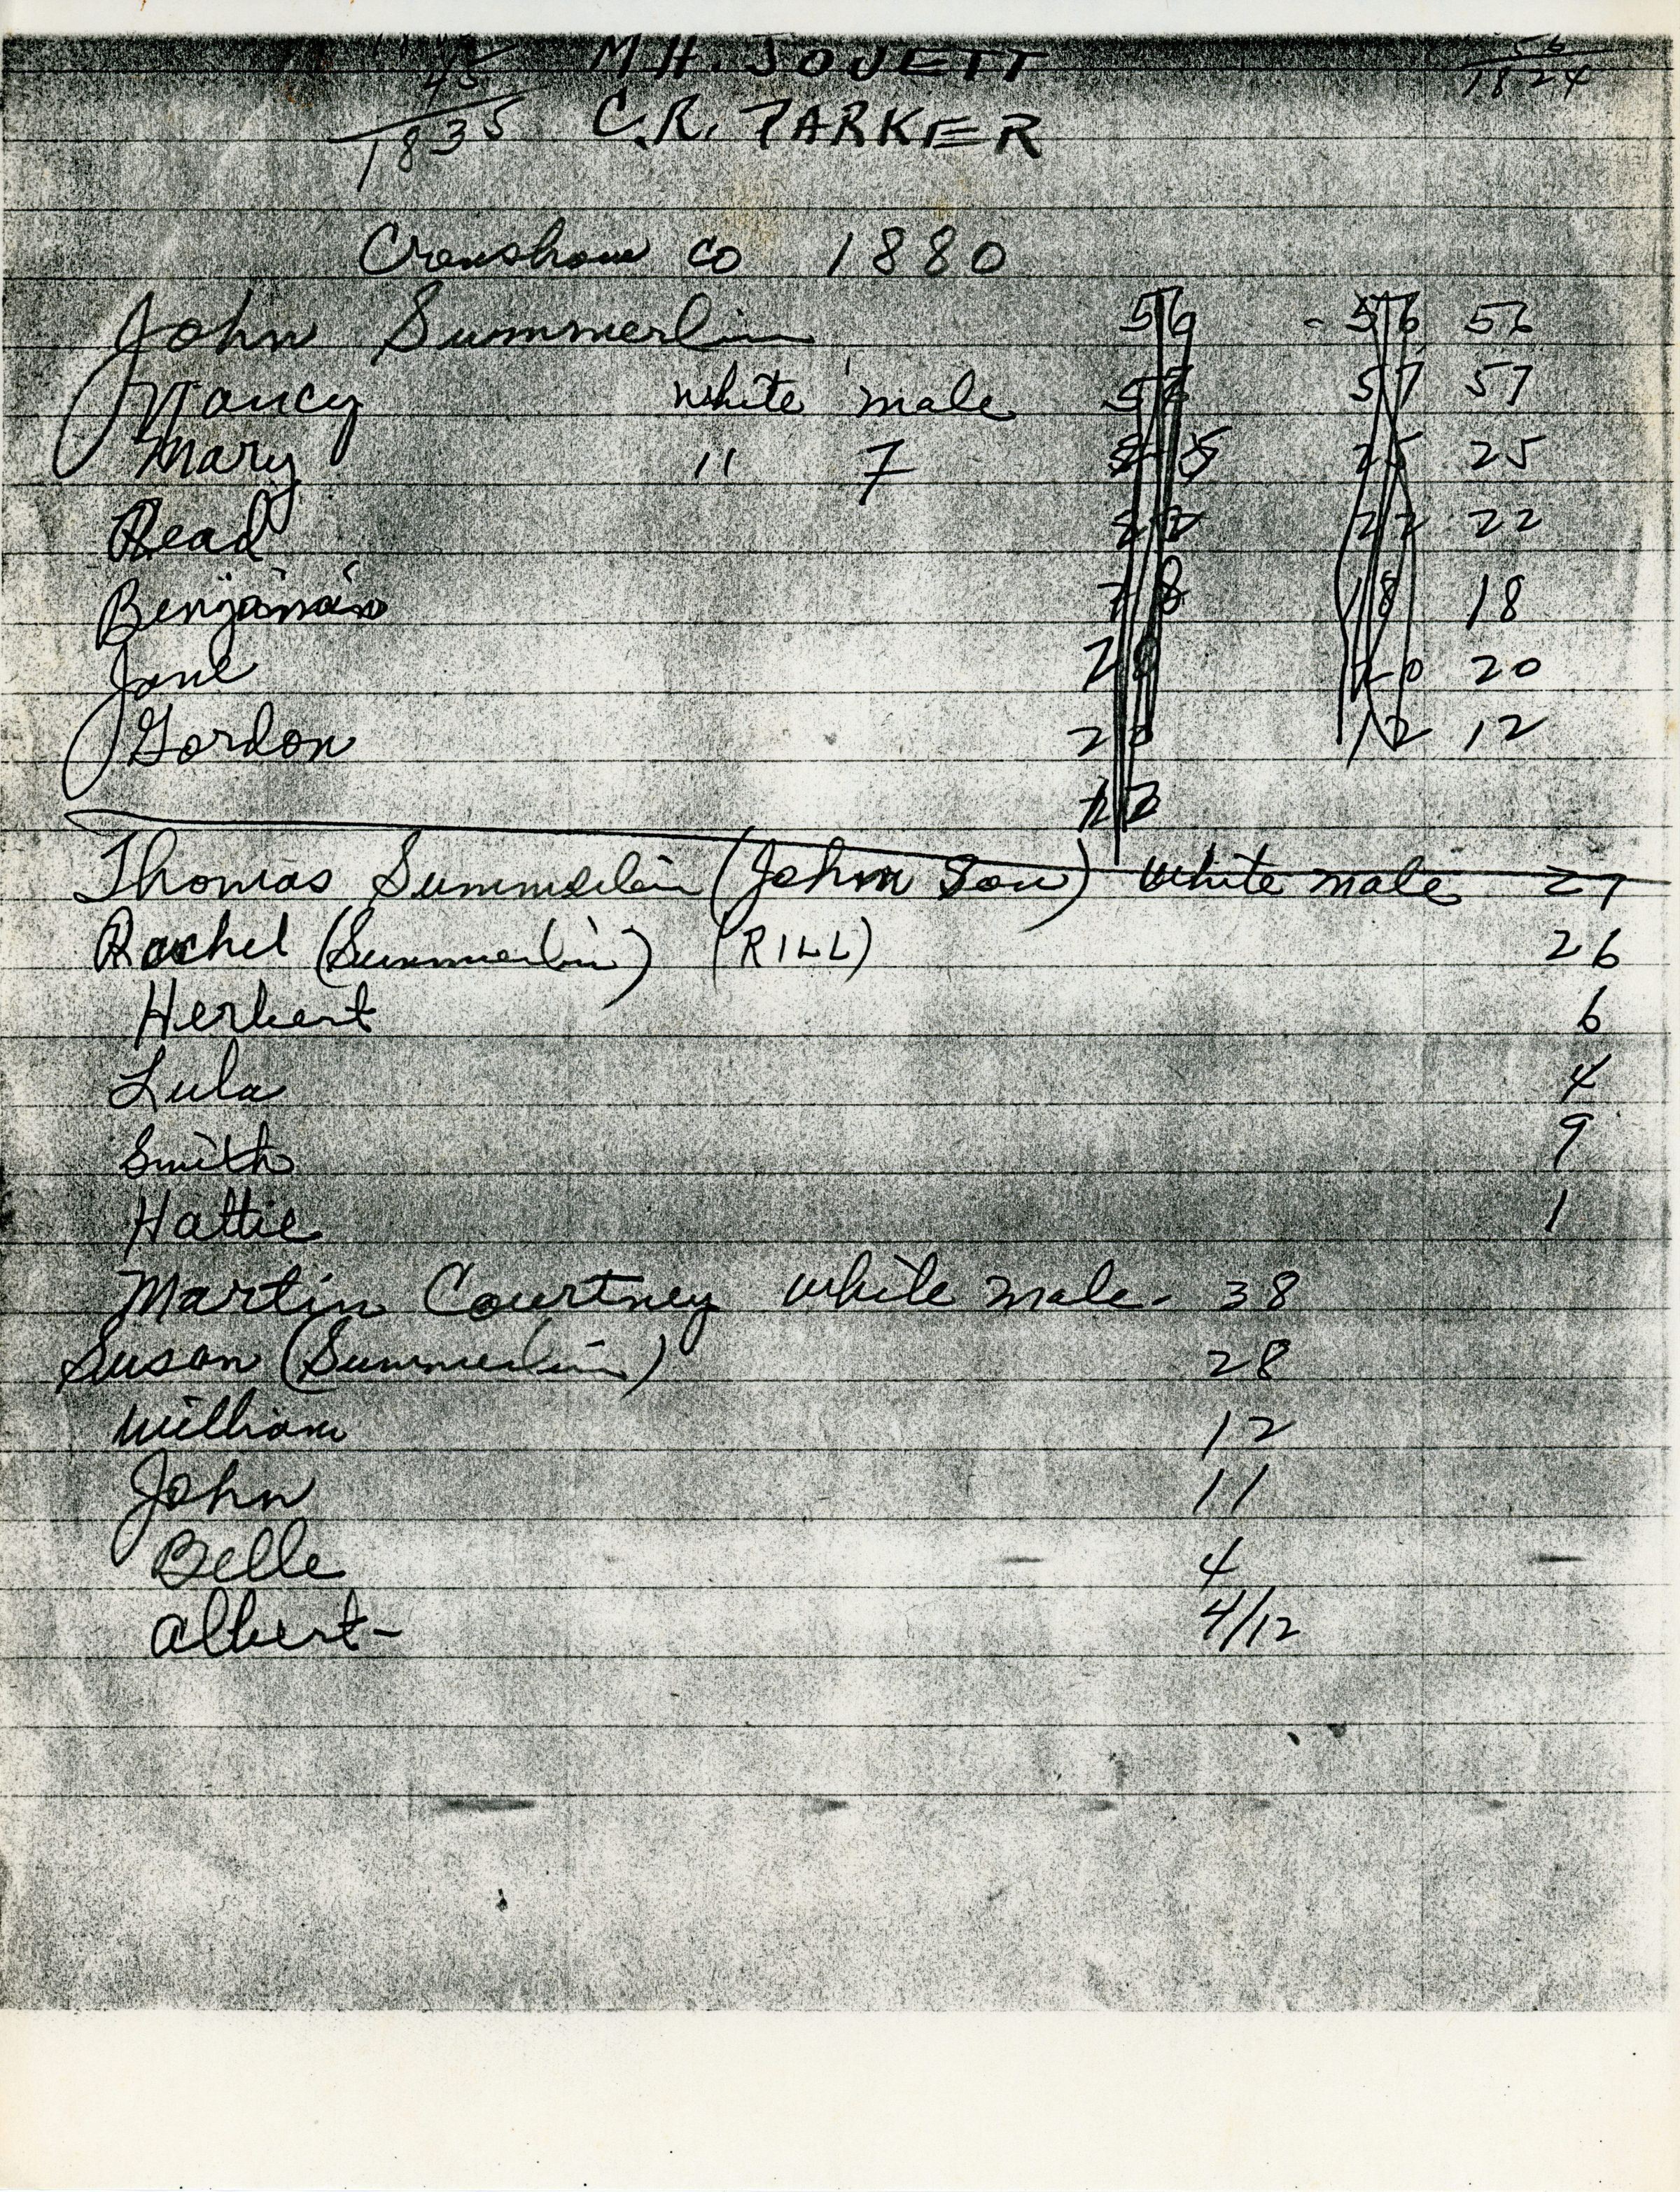 45 M.H. JOUETT 56
1835 C.R. PARKER 1824
Crenshaw Co 1880
John Summerlin 56 - 56 56
Nancy white male 57 57
Mary " 7 25 25
Read 22 22
Benjamin 18 18
Jane 20 20
Gordon 12 12
12
Thomas Summerlin (John Son) White male 27
Rachel (Summerlin) (RILL) 26
Herbert 6
Lula 4
Smith 9
Hattie 1
Martin Courtney white male - 38
Susan (Summerlin) 28
William 12
John 11
Belle 4
Albert - 4/12